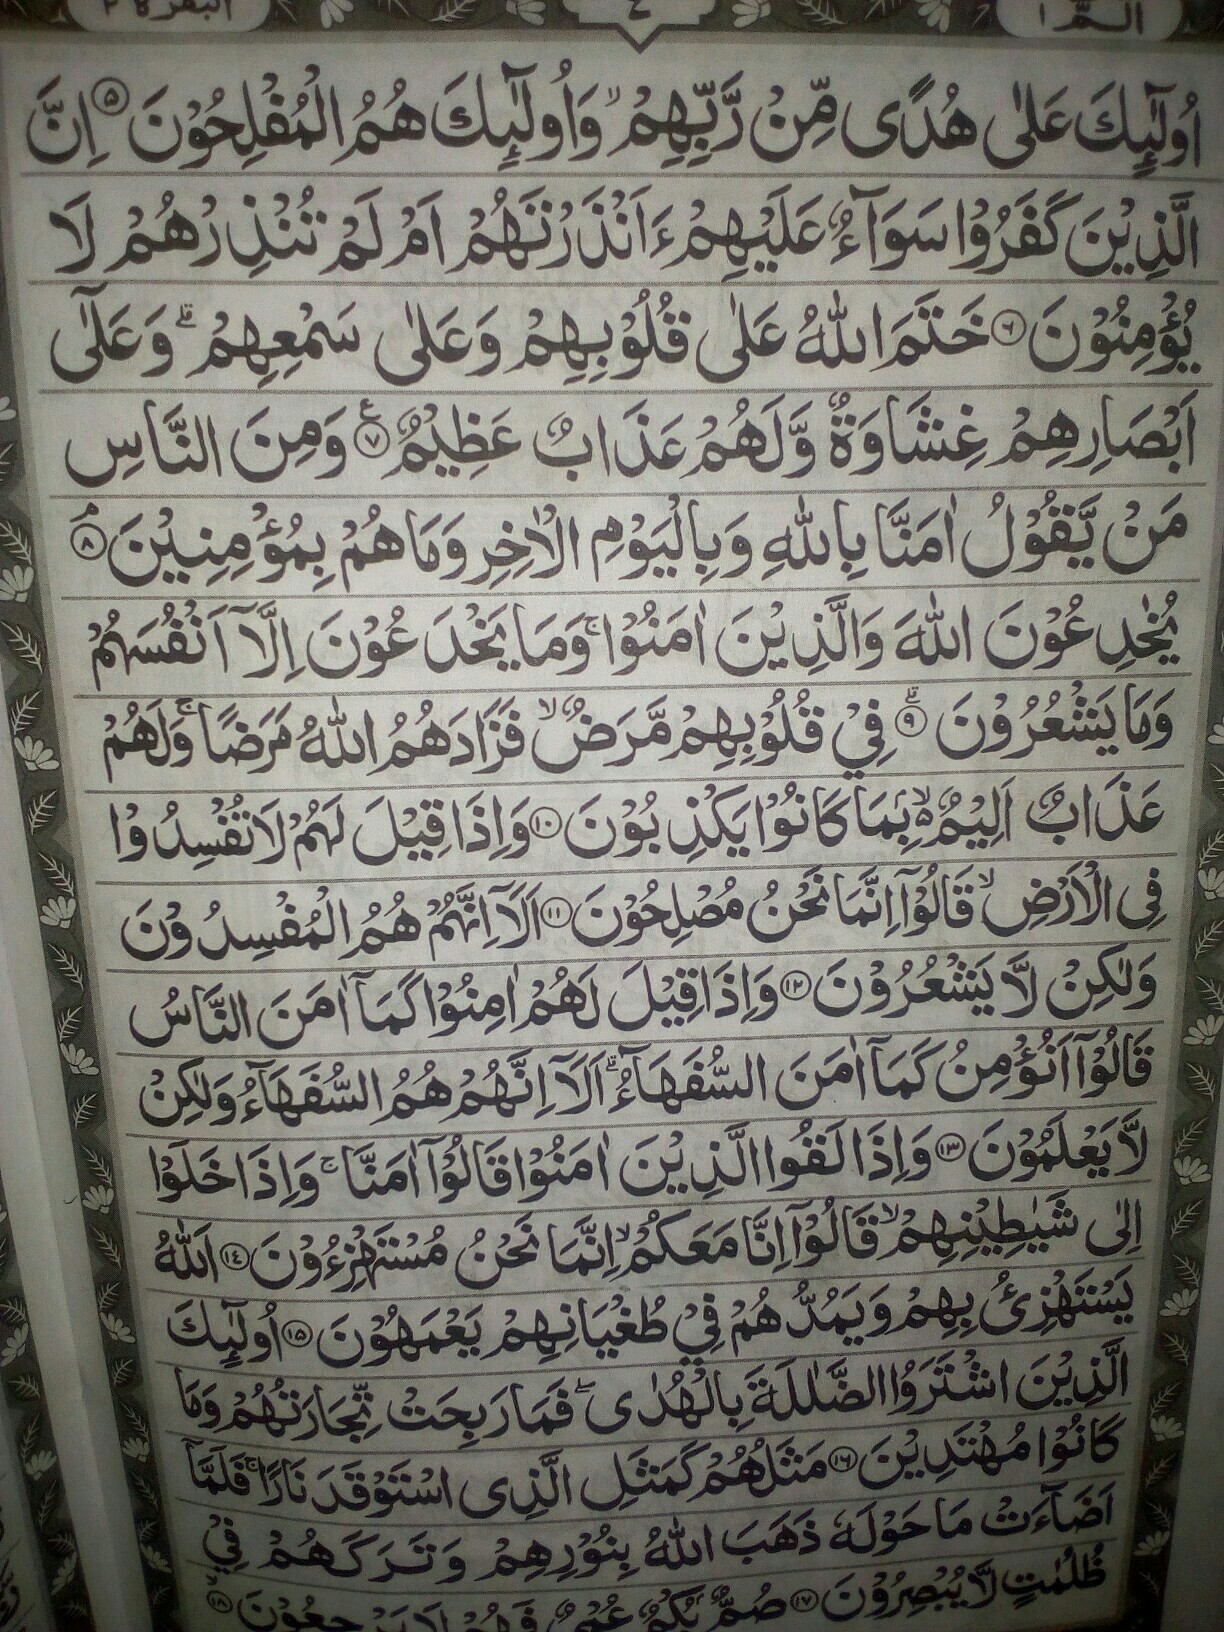 البقرة ٢ ٤ الٓمّٓ ١
اُولٰٓئِكَ عَلٰى هُدًى مِّنْ رَّبِّهِمْ ۙ وَاُولٰٓئِكَ هُمُ الْمُفْلِحُوْنَ ۝۵ اِنَّ
الَّذِيْنَ كَفَرُوْا سَوَآءٌ عَلَيْهِمْ ءَاَنْذَرْتَهُمْ اَمْ لَمْ تُنْذِرْهُمْ لَا
يُؤْمِنُوْنَ ۝۶ خَتَمَ اللّٰهُ عَلٰى قُلُوْبِهِمْ وَعَلٰى سَمْعِهِمْ ؕ وَعَلٰٓى
اَبْصَارِهِمْ غِشَاوَةٌ وَّلَهُمْ عَذَابٌ عَظِيْمٌ ۝۷ وَمِنَ النَّاسِ
مَنْ يَّقُوْلُ اٰمَنَّا بِاللّٰهِ وَبِالْيَوْمِ الْاٰخِرِ وَمَا هُمْ بِمُؤْمِنِيْنَ ۝۸
يُخٰدِعُوْنَ اللّٰهَ وَالَّذِيْنَ اٰمَنُوْا ۚ وَمَا يَخْدَعُوْنَ اِلَّآ اَنْفُسَهُمْ
وَمَا يَشْعُرُوْنَ ۝۹ فِيْ قُلُوْبِهِمْ مَّرَضٌ ۙ فَزَادَهُمُ اللّٰهُ مَرَضًا ۚ وَلَهُمْ
عَذَابٌ اَلِيْمٌ ۙ۬ بِمَا كَانُوْا يَكْذِبُوْنَ ۝۱۰ وَاِذَا قِيْلَ لَهُمْ لَا تُفْسِدُوْا
فِى الْاَرْضِ ۙ قَالُوْٓا اِنَّمَا نَحْنُ مُصْلِحُوْنَ ۝۱۱ اَلَآ اِنَّهُمْ هُمُ الْمُفْسِدُوْنَ
وَلٰكِنْ لَّا يَشْعُرُوْنَ ۝۱۲ وَاِذَا قِيْلَ لَهُمْ اٰمِنُوْا كَمَآ اٰمَنَ النَّاسُ
قَالُوْٓا اَنُؤْمِنُ كَمَآ اٰمَنَ السُّفَهَآءُ ؕ اَلَآ اِنَّهُمْ هُمُ السُّفَهَآءُ وَلٰكِنْ
لَّا يَعْلَمُوْنَ ۝۱۳ وَاِذَا لَقُوا الَّذِيْنَ اٰمَنُوْا قَالُوْٓا اٰمَنَّا ۚ وَاِذَا خَلَوْا
اِلٰى شَيٰطِيْنِهِمْ ۙ قَالُوْٓا اِنَّا مَعَكُمْ ۙ اِنَّمَا نَحْنُ مُسْتَهْزِءُوْنَ ۝۱٤ اَللّٰهُ
يَسْتَهْزِئُ بِهِمْ وَيَمُدُّهُمْ فِيْ طُغْيَانِهِمْ يَعْمَهُوْنَ ۝۱۵ اُولٰٓئِكَ
الَّذِيْنَ اشْتَرَوُا الضَّلٰلَةَ بِالْهُدٰى ۪ فَمَا رَبِحَتْ تِّجَارَتُهُمْ وَمَا
كَانُوْا مُهْتَدِيْنَ ۝۱۶ مَثَلُهُمْ كَمَثَلِ الَّذِى اسْتَوْقَدَ نَارًا ۚ فَلَمَّآ
اَضَآءَتْ مَا حَوْلَهٗ ذَهَبَ اللّٰهُ بِنُوْرِهِمْ وَتَرَكَهُمْ فِيْ
ظُلُمٰتٍ لَّا يُبْصِرُوْنَ ۝۱۷ صُمٌّۢ بُكْمٌ عُمْيٌ فَهُمْ لَا يَرْجِعُوْنَ ۝۱۸